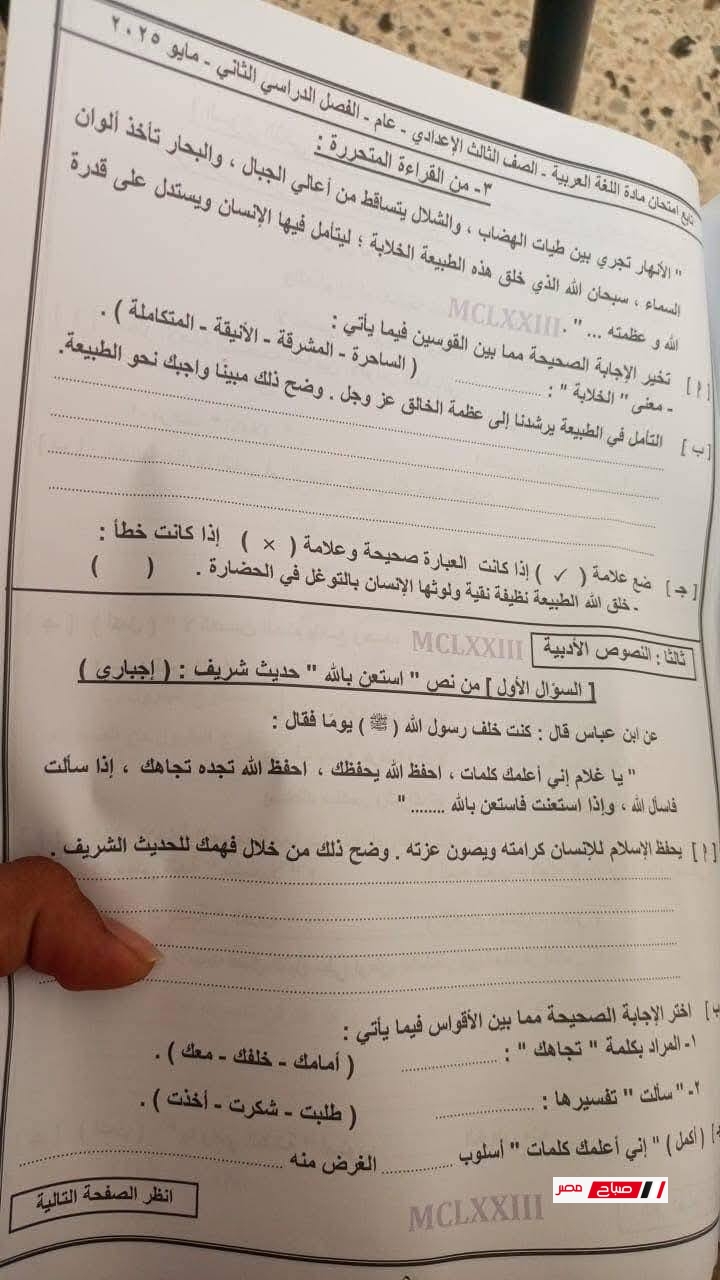 تابع امتحان مادة اللغة العربية - الصف الثالث الإعدادي - عام - الفصل الدراسي الثاني - مايو ٢٠٢٥
٣- من القراءة المتحررة :
" الأنهار تجري بين طيات الهضاب ، والشلال يتساقط من أعالي الجبال ، والبحار تأخذ ألوان
السماء ، سبحان الله الذي خلق هذه الطبيعة الخلابة ؛ ليتأمل فيها الإنسان ويستدل على قدرة
الله و عظمته ... " .
MCLXXIII
[ أ ] تخير الإجابة الصحيحة مما بين القوسين فيما يأتي :
- معنى " الخلابة " : .................... ( الساحرة - المشرقة - الأنيقة - المتكاملة ) .
[ ب ] التأمل في الطبيعة يرشدنا إلى عظمة الخالق عز وجل . وضح ذلك مبينا واجبك نحو الطبيعة.
[ جـ ] ضع علامة ( ✓ ) إذا كانت العبارة صحيحة وعلامة ( × ) إذا كانت خطأ :
- خلق الله الطبيعة نظيفة نقية ولوثها الإنسان بالتوغل في الحضارة . ( )
ثالثا : النصوص الأدبية
MCLXXIII
[ السؤال الأول ] من نص " استعن بالله " حديث شريف : ( إجبارى )
عن ابن عباس قال : كنت خلف رسول الله ( ﷺ ) يومًا فقال :
" يا غلام إني أعلمك كلمات ، احفظ الله يحفظك ، احفظ الله تجده تجاهك ، إذا سألت
فاسأل الله ، وإذا استعنت فاستعن بالله ........ "
[ أ ] يحفظ الإسلام للإنسان كرامته ويصون عزته . وضح ذلك من خلال فهمك للحديث الشريف .
ب] اختر الإجابة الصحيحة مما بين الأقواس فيما يأتي :
١- المراد بكلمة " تجاهك " : .................... ( أمامك - خلفك - معك ) .
٢- " سألت " تفسيرها : .................... ( طلبت - شكرت - أخذت ) .
( أكمل ) " إني أعلمك كلمات " أسلوب .............. الغرض منه ..............................
صباح مصر
انظر الصفحة التالية
MCLXXIII